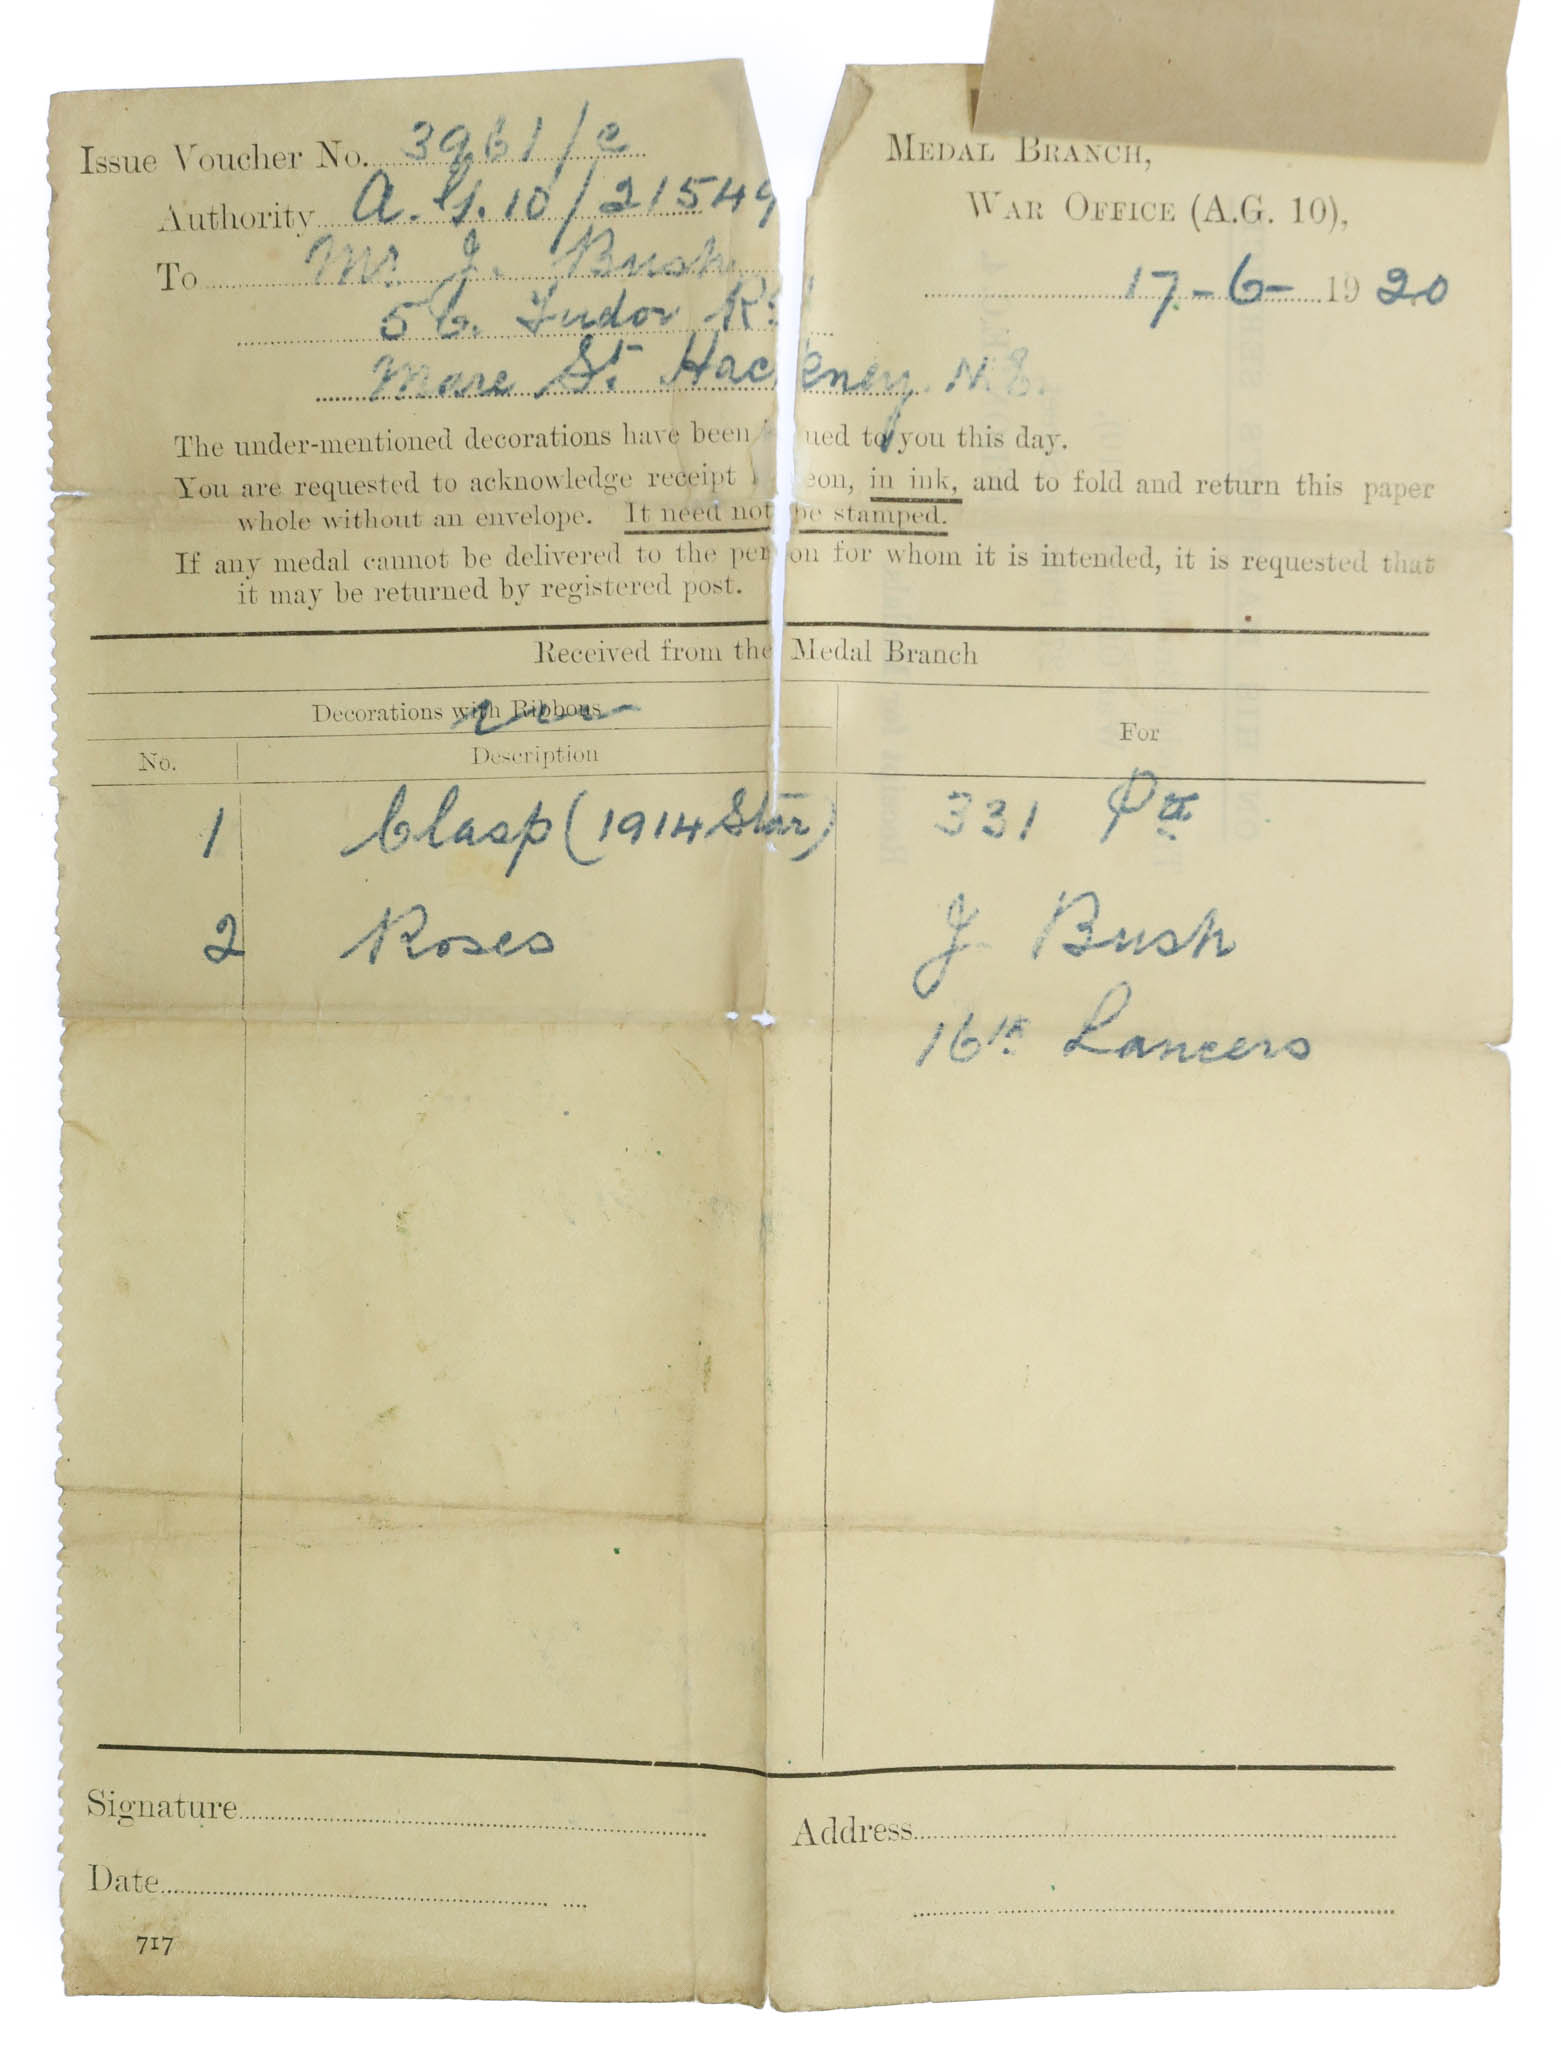 Issue Voucher No. 3961/c
Authority A.G. 10/21549
To Mr. J. Bush
56. Tudor Rd
Mare St. Hackney. N.E.
MEDAL BRANCH,
WAR OFFICE (A.G. 10),
17-6-1920
The under-mentioned decorations have been ued to you this day.
You are requested to acknowledge receipt eon, in ink, and to fold and return this paper
whole without an envelope. It need not be stamped.
If any medal cannot be delivered to the person for whom it is intended, it is requested that
it may be returned by registered post.
Received from the Medal Branch
Decorations with Ribbons
For
No. Description
1 Clasp (1914 Star) 331 Pte
2 Roses J. Bush
16th Lancers
Signature
Address
Date
717